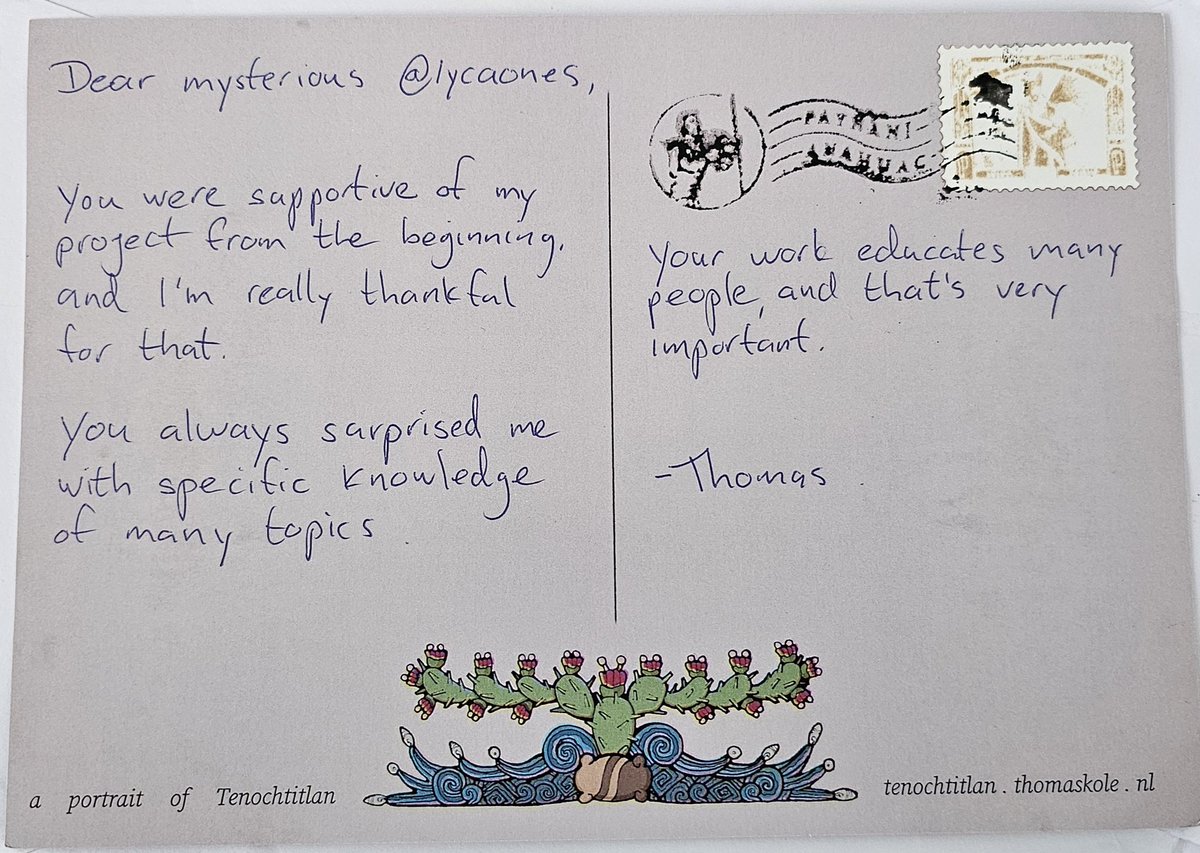 Dear mysterious @lycaones,
You were supportive of my
project from the beginning,
and I'm really thankful
for that.
You always surprised me
with specific knowledge
of many topics.
PAYNANI
ANAHUAC
Your work educates many
people, and that's very
important.
-Thomas
a portrait of Tenochtitlan
tenochtitlan.thomaskole.nl